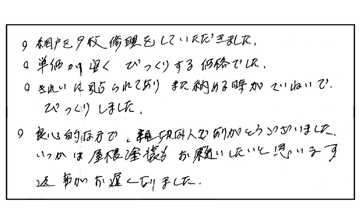 ○ 網戸を9枚修理をしていただきました。
○ 単価が安く びっくりする価格でした。
○ きれいに貼られており また納める時がていねいで
びっくりしました。
○ 良心的な方で、親切な人でありがとうございました
いつかは屋根塗装もお願いしたいと思います
返事がお遅くなりました。